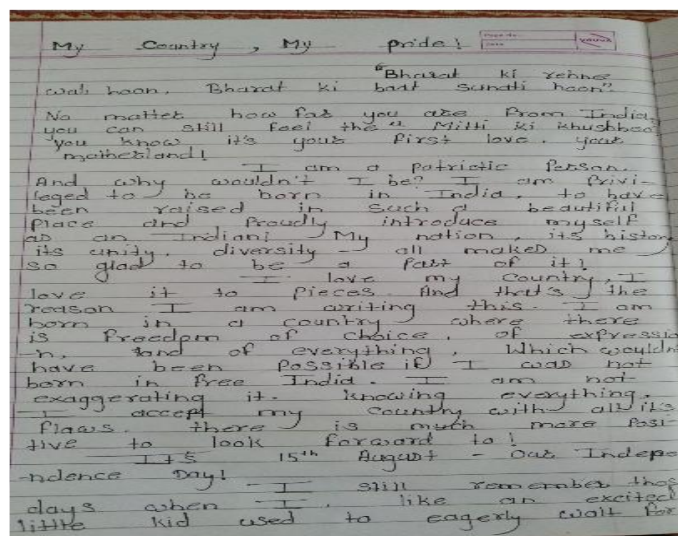 My Country, My pride!
"Bharat ki rehne
wali hoon, Bharat ki baat sunati hoon"
No matter how far you are from India,
you can still feel the "Mitti ki khushboo"
you know it's your first love. your
motherland!
I am a patriotic person.
And why wouldn't I be? I am Privi-
leged to be born in India, to have
been raised in such a beautiful
place and Proudly introduce myself
as an Indian! My nation, its histor
its unity, diversity - all makes me
so glad to be a Part of it!
I love my country, I
love it to pieces. And that's the
reason I am writing this. I am
born in a country where there
is freedom of choice, of expressio
-n, and of everything, Which wouldn
have been Possible if I was not
born in free India. I am not
exaggerating it. knowing everything,
I accept my country with all its
flaws. there is much more Posi-
tive to look forward to!
It's 15th August - Our Indepe
-ndence Day!
I still remember thos
days when I, like an excited
little kid used to eagerly wait for